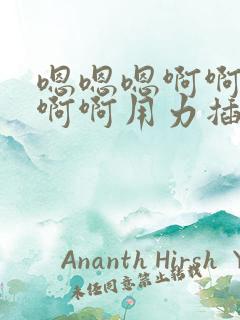 嗯嗯嗯啊啊
啊啊用力插
Ananth Hirsh Y
未经同意禁止转载